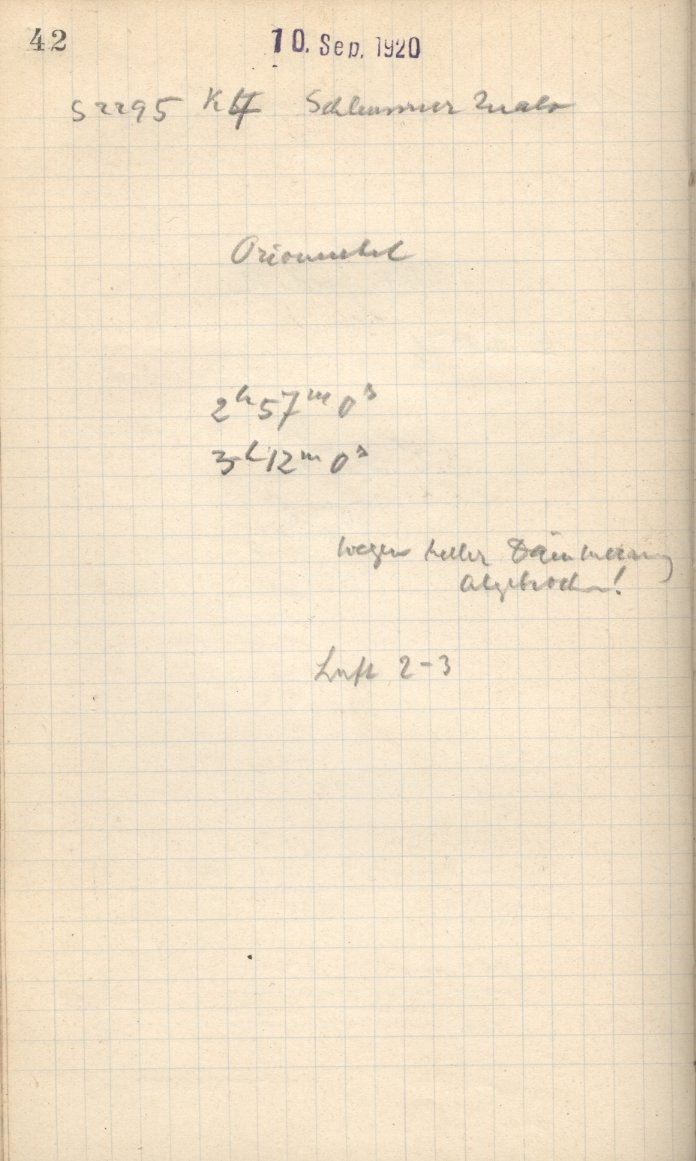 42
10. Sep. 1920
S 2295 K 4 Schleussner
Orionnebel
2h 57m 0s
3h 12m 0s
wegen heller Dämmerung
abgebrochen!
Luft 2-3